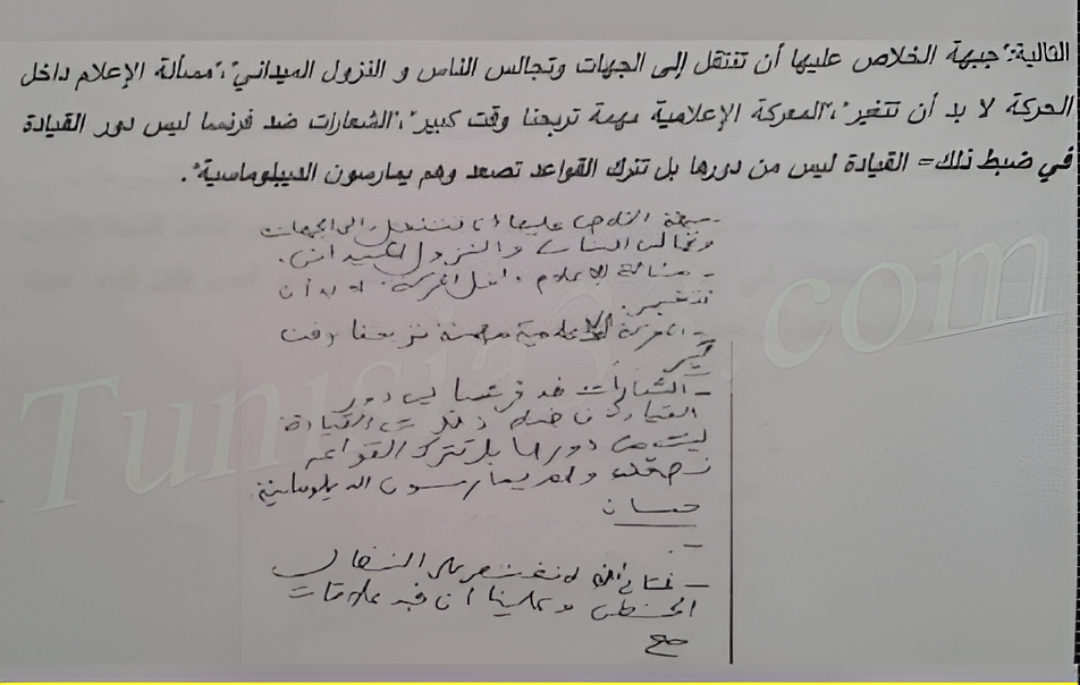 التالية:"جبهة الخلاص عليها أن تتنقل إلى الجهات وتجالس الناس و النزول الميداني"،"مسألة الإعلام داخل
الحركة لا بد أن تتغير"،"المعركة الإعلامية مهمة تربحنا وقت كبير"،"الشعارات ضد فرنسا ليس دور القيادة
في ضبط ذلك= القيادة ليس من دورها بل تترك القواعد تصعد وهم يمارسون الديبلوماسية".
- جبهة الخلاص عليها أن تتنقل إلى الجهات
وتجالس الناس والنزول الميداني.
- مسألة الإعلام داخل الحركة لا بد أن
تتغير.
- المعركة الإعلامية مهمة تربحنا وقت
كبير
- الشعارات ضد فرنسا ليس دور
القيادة في ضبط ذلك = القيادة
ليست من دورها بل تترك القواعد
تصعد وهم يمارسون الديبلوماسية
حسان
-
- نحتاج لا نقتصر على النضال
و علينا أن علاقات
مع
Tunisia .com